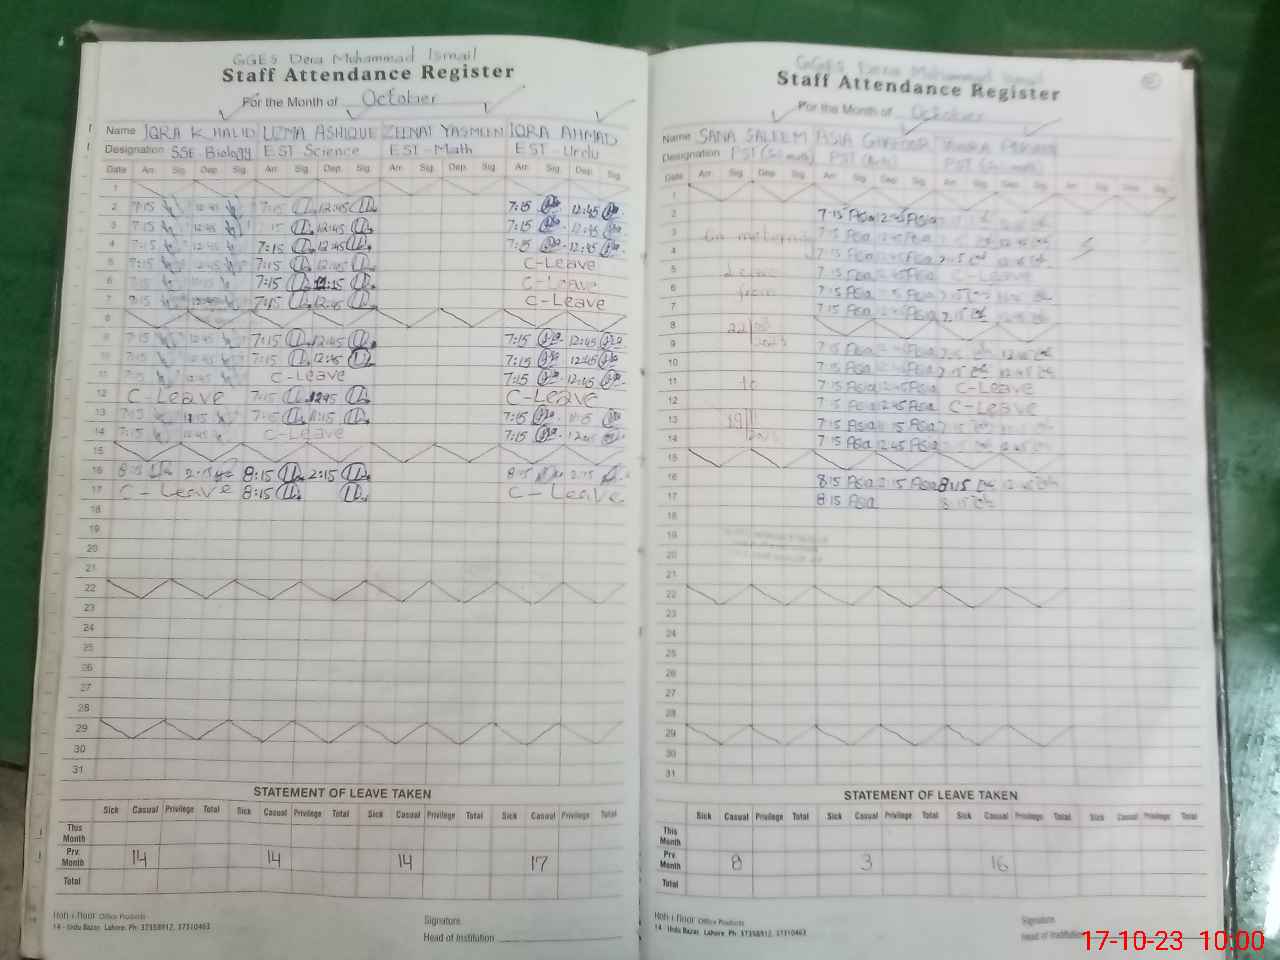 GGES Dera Muhammad Ismail
Staff Attendance Register
For the Month of October
Name IQRA KHALID UZMA ASHIQUE ZEENAT YASMEEN IQRA AHMAD
Designation SSE-Biology EST Science EST-Math EST-Urdu
Date Arr. Sig. Dep. Sig. Arr. Sig. Dep. Sig. Arr. Sig. Dep. Sig. Arr. Sig. Dep. Sig.
1
2 7:15 12:45 7:15 12:45 7:15 12:45
3 7:15 12:45 7:15 12:45 7:15 12:45
4 7:15 12:45 7:15 12:45 7:15 12:45
5 7:15 12:45 7:15 12:45 C-Leave
6 7:15 7:15 C-Leave
7 7:15 12:45 7:15 12:45 C-Leave
8
9 7:15 12:45 7:15 12:45 7:15 12:45
10 7:15 12:45 7:15 12:45 7:15 12:45
11 7:15 12:45 C-Leave 7:15 12:45
12 C-Leave 7:15 12:45 C-Leave
13 7:15 11:15 7:15 11:15 7:15 11:15
14 7:15 12:45 C-Leave 7:15 12:45
15
16 8:15 2:15 8:15 2:15 8:15 2:15
17 C-Leave 8:15 C-Leave
18
19
20
21
22
23
24
25
26
27
28
29
30
31
STATEMENT OF LEAVE TAKEN
Sick Casual Privilege Total Sick Casual Privilege Total Sick Casual Privilege Total Sick Casual Privilege Total
This Month
Prv. Month 14 14 14 17
Total
Office Products
14 - Urdu Bazar, Lahore. Ph: 37358912, 37310463
Signature
Head of Institution
GGES Dera Muhammad Ismail
Staff Attendance Register
For the Month of October
Name SANA SALEEM ASIA
Designation PST PST PST
Date Arr. Sig. Dep. Sig. Arr. Sig. Dep. Sig. Arr. Sig. Dep. Sig. Arr. Sig. Dep. Sig.
1
2 7:15 Asia 12:45 Asia
3 On maternity 7:15 Asia 12:45 Asia 12:45
4 7:15 Asia 12:45 Asia 7:15 12:45
5 Leave 7:15 Asia 12:45 Asia C-Leave
6 from 7:15 Asia Asia 7:15
7 7:15 Asia 12:45 Asia 7:15 12:45
8 22
9 7:15 Asia 12:45 Asia 7:15 12:45
10 7:15 Asia 12:45 Asia 7:15 12:45
11 to 7:15 Asia 12:45 Asia C-Leave
12 7:15 Asia 12:45 Asia C-Leave
13 19 7:15 Asia 11:15 Asia 7:15
14 7:15 Asia 12:45 Asia 7:15 12:45
15
16 8:15 Asia 2:15 Asia 8:15
17 8:15 Asia 8:15
18
19
20
21
22
23
24
25
26
27
28
29
30
31
STATEMENT OF LEAVE TAKEN
Sick Casual Privilege Total Sick Casual Privilege Total Sick Casual Privilege Total Sick Casual Privilege Total
This Month
Prv. Month 8 3 16
Total
Office Products
14 - Urdu Bazar, Lahore. Ph: 37358912, 37310463
Signature
Head of Institution
17-10-23 10:00